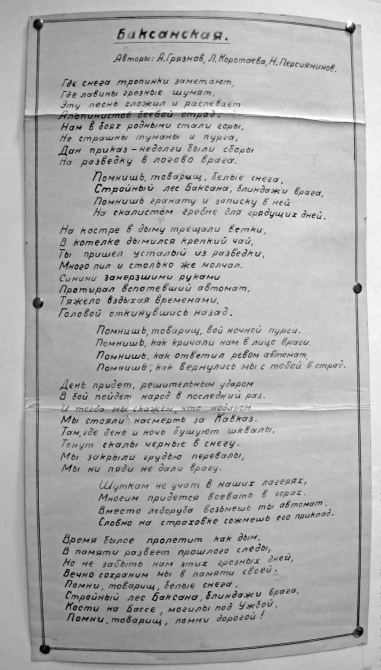 Баксанская.
Авторы: А.Грязнов, Л.Коротаева, Н.Персиянинов.
Где снега тропинки заметают,
Где лавины грозные шумят,
Эту песнь сложил и распевает
Альпинистов боевой отряд.
Нам в боях родными стали горы,
Не страшны туманы и пурга,
Дан приказ – недолги были сборы
На разведку в логово врага.
Помнишь, товарищ, белые снега,
Стройный лес Баксана, блиндажи врага,
Помнишь гранату и записку в ней
На скалистом гребне для грядущих дней.
На костре в дыму трещали ветки,
В котелке дымился крепкий чай,
Ты пришел усталый из разведки,
Много пил и столько же молчал.
Синими замерзшими руками
Протирал вспотевший автомат,
Тяжело вздыхая временами,
Головой откинувшись назад.
Помнишь, товарищ, вой ночной пурги,
Помнишь, как кричали нам в лицо враги,
Помнишь, как ответил ревом автомат,
Помнишь, как вернулись мы с тобой в отряд.
День придет, решительным ударом
В бой пойдет народ в последний раз.
И тогда мы скажем, что недаром
Мы стояли насмерть за Кавказ.
Там, где день и ночь бушуют шквалы,
Тонут скалы черные в снегу.
Мы закрыли грудью перевалы,
Мы ни пяди не дали врагу.
Шуткам не учат в наших лагерях,
Многим придется воевать в горах.
Вместо ледоруба возьмешь ты автомат,
Словно на страховке сожмешь его приклад.
Время былое пролетит как дым,
В памяти развеет прошлого следы,
Но не забыть нам этих грозных дней,
Вечно сохраним мы в памяти своей.
Помни, товарищ, белые снега,
Стройный лес Баксана, блиндажи врага,
Кости на Бассе, могилы под Ужбой,
Помни, товарищ, помни дорогой!